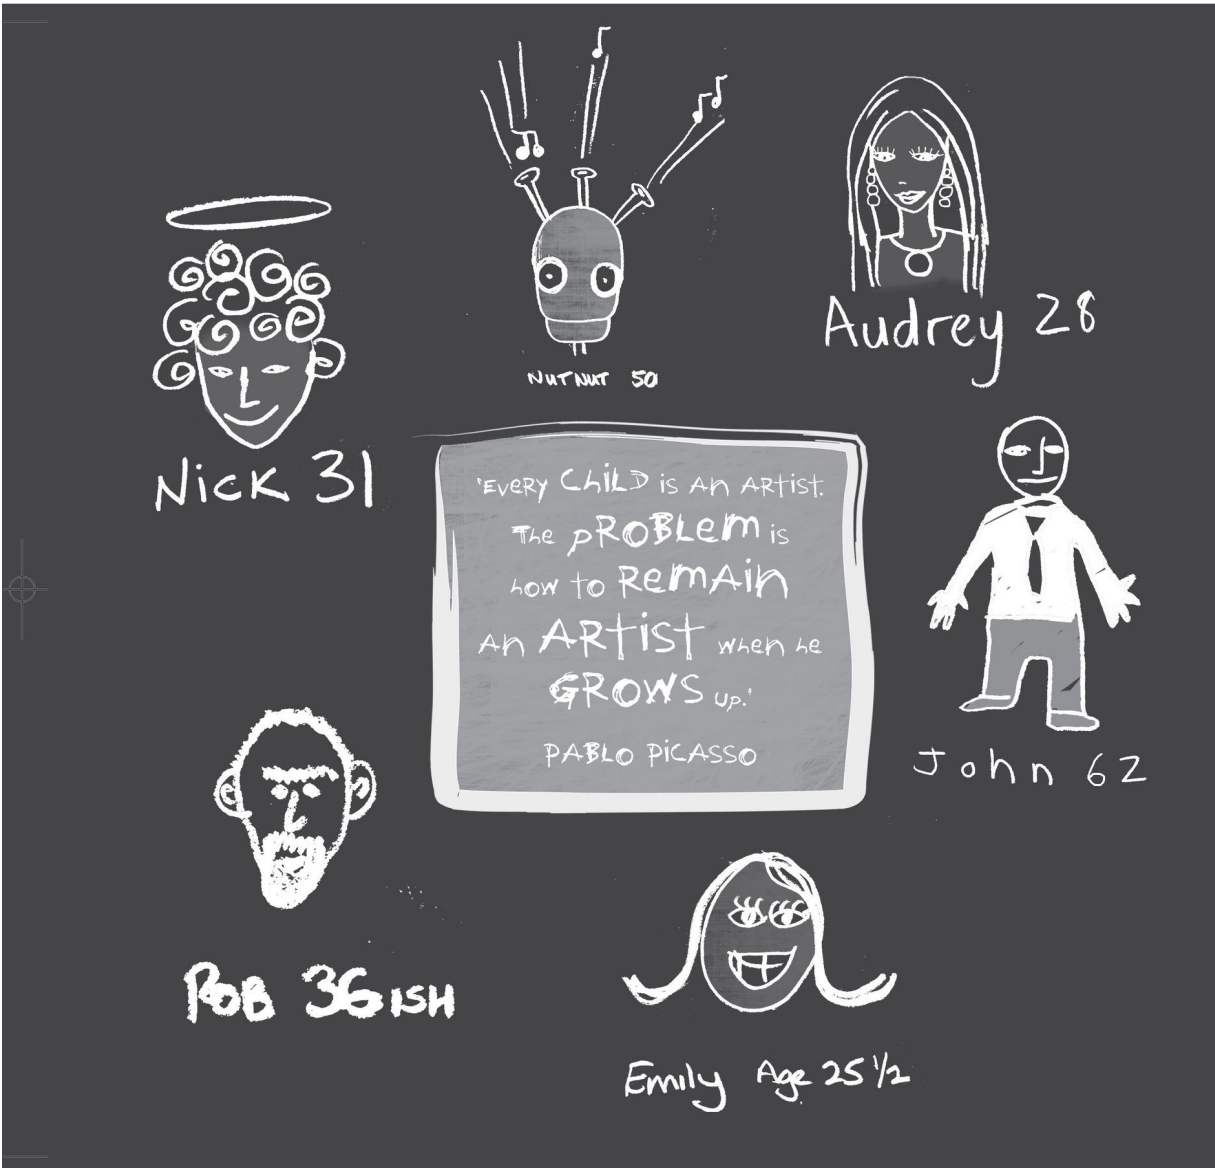 NUTNUT 50
Audrey 28
Nick 31
'EVERY CHILD is AN ARTIST.
The PROBLEM is
how to REMAIN
An ARTIST when he
GROWS UP.'
PABLO PICASSO
John 62
ROB 36ISH
Emily Age 25 1/2